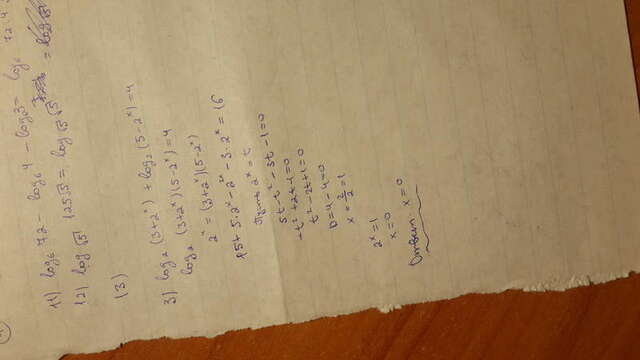 11) log₆ 72 - log₆ 4 - log₆ 3 = log₆ 72 : 4
12) log √5 125√5 = log √5 √5⁷ = log √5
(3)
3) log₂ (3+2ˣ) + log₂ (5-2ˣ) = 4
log₂ (3+2ˣ)(5-2ˣ) = 4
2ˣ = (3+2ˣ)(5-2ˣ)
15 + 5·2ˣ - 2²ˣ - 3·2ˣ = 16
Пусть 2ˣ = t
5t - t² - 3t - 1 = 0
-t² + 2t - 1 = 0
t² - 2t + 1 = 0
D = 4 - 4 = 0
x = 2/2 = 1
2ˣ = 1
x = 0
Ответ. x = 0